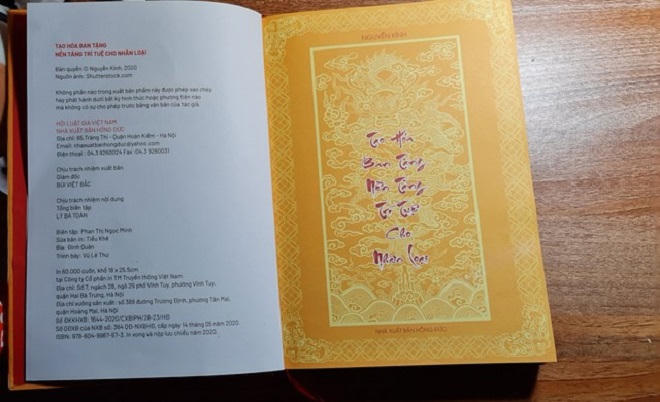 TẠO HÓA BAN TẶNG
NỀN TẢNG TRÍ TUỆ CHO NHÂN LOẠI
Bản quyền: © Nguyễn Kính, 2020
Nguồn ảnh: Shutterstock.com
Không phần nào trong xuất bản phẩm này được phép sao chép
hay phát hành dưới bất kỳ hình thức hoặc phương tiện nào
mà không có sự cho phép trước bằng văn bản của tác giả.
HỘI LUẬT GIA VIỆT NAM
NHÀ XUẤT BẢN HỒNG ĐỨC
Địa chỉ: 65, Tràng Thi - Quận Hoàn Kiếm - Hà Nội
Email: nhaxuatbanhongduc@yahoo.com
Điện thoại: 04.3 9260024 Fax: 04.3 9260031
Chịu trách nhiệm xuất bản
Giám đốc
BÙI VIỆT BẮC
Chịu trách nhiệm nội dung
Tổng biên tập
LÝ BÁ TOÀN
Biên tập: Phan Thị Ngọc Minh
Sửa bản in: Tiểu Khê
Bìa: Đình Quân
Trình bày: Vũ Lê Thư
In 60.000 cuốn, khổ 18 x 25,5cm
tại Công ty Cổ phần in TM Truyền thông Việt Nam
Địa chỉ: Số 7, ngách 28, ngõ 25 phố Vĩnh Tuy, phường Vĩnh Tuy,
quận Hai Bà Trưng, Hà Nội
Địa chỉ xưởng sản xuất: số 389 đường Trương Định, phường Tân Mai,
quận Hoàng Mai, Hà Nội
Số ĐKKHXB: 1644-2020/CXBIPH/28-23/HĐ
Số QĐXB của NXB số: 364 QĐ-NXBHĐ, cấp ngày 14 tháng 05 năm 2020.
ISBN: 978-604-9987-67-3. In xong và nộp lưu chiểu năm 2020.
NGUYỄN KÍNH
Tạo Hóa
Ban Tặng
Nền Tảng
Trí Tuệ
Cho
Nhân Loại
NHÀ XUẤT BẢN HỒNG ĐỨC